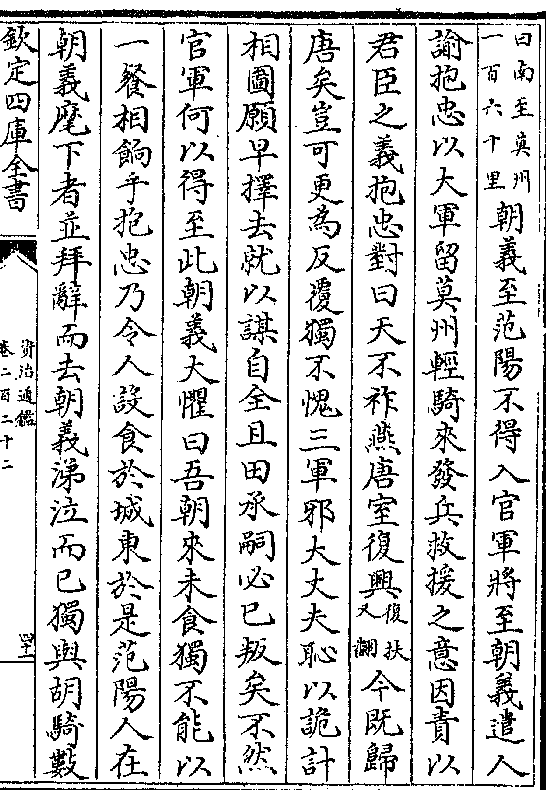 曰南至莫州
一百六十里
朝義至范陽不得入官軍將至朝義遣人
諭抱忠以大軍留莫州輕騎來發兵救援之意因責以
君臣之義抱忠對曰天不祚燕唐室復興復扶又翻今既歸
唐矣豈可更為反覆獨不愧三軍邪大丈夫恥以詭計
相圖願早擇去就以謀自全且田承嗣必已叛矣不然
官軍何以得至此朝義大懼曰吾朝來未食獨不能以
一餐相餉乎抱忠乃令人設食於城東於是范陽人在
朝義麾下者並拜辭而去朝義涕泣而已獨與胡騎數
欽定四庫全書
資治通鑑
卷二百二十二
四十二